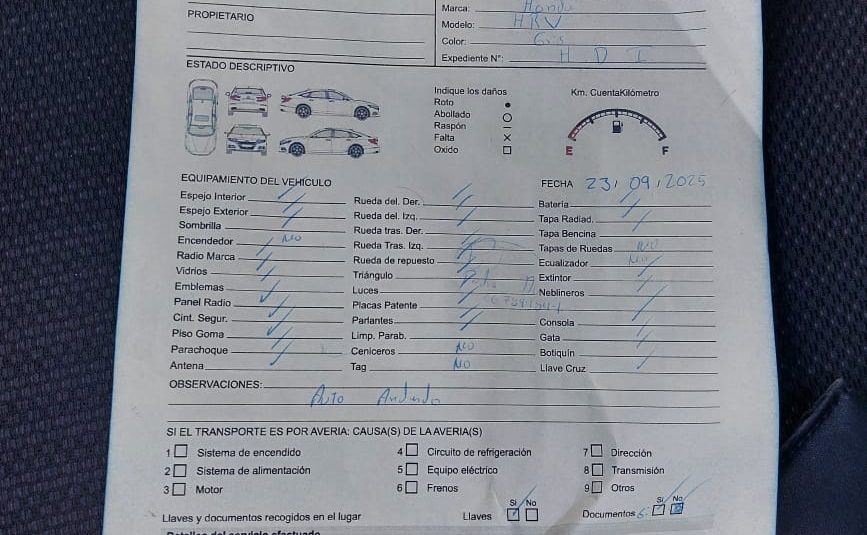 Marca: Honda
PROPIETARIO
Modelo: HRV
Color: Gris
Expediente N°: H D I
ESTADO DESCRIPTIVO
Indique los daños
Km. CuentaKilómetro
Roto
Abollado
Raspón
Falta
Oxido
E F
EQUIPAMIENTO DEL VEHÍCULO
FECHA 23/09/2025
Espejo Interior
Rueda del. Der.
Batería
Espejo Exterior
Rueda del. Izq.
Tapa Radiad.
Sombrilla
Rueda tras. Der.
Tapa Bencina
Encendedor NO
Rueda Tras. Izq.
Tapas de Ruedas NO
Radio Marca
Rueda de repuesto
Ecualizador NO
Vidrios
Triángulo
Extintor
Emblemas
Luces
Neblineros
Panel Radio
Placas Patente
Cint. Segur.
Parlantes
Consola
Piso Goma
Limp. Parab.
Gata
Parachoque
Ceniceros NO
Botiquín
Antena
Tag NO
Llave Cruz
OBSERVACIONES:
Auto Andando
SI EL TRANSPORTE ES POR AVERIA: CAUSA(S) DE LA AVERIA(S)
1 Sistema de encendido
4 Circuito de refrigeración
7 Dirección
2 Sistema de alimentación
5 Equipo eléctrico
8 Transmisión
3 Motor
6 Frenos
9 Otros
Si No
Si No
Llaves y documentos recogidos en el lugar
Llaves
Documentos
Detalles del servicio efectuado